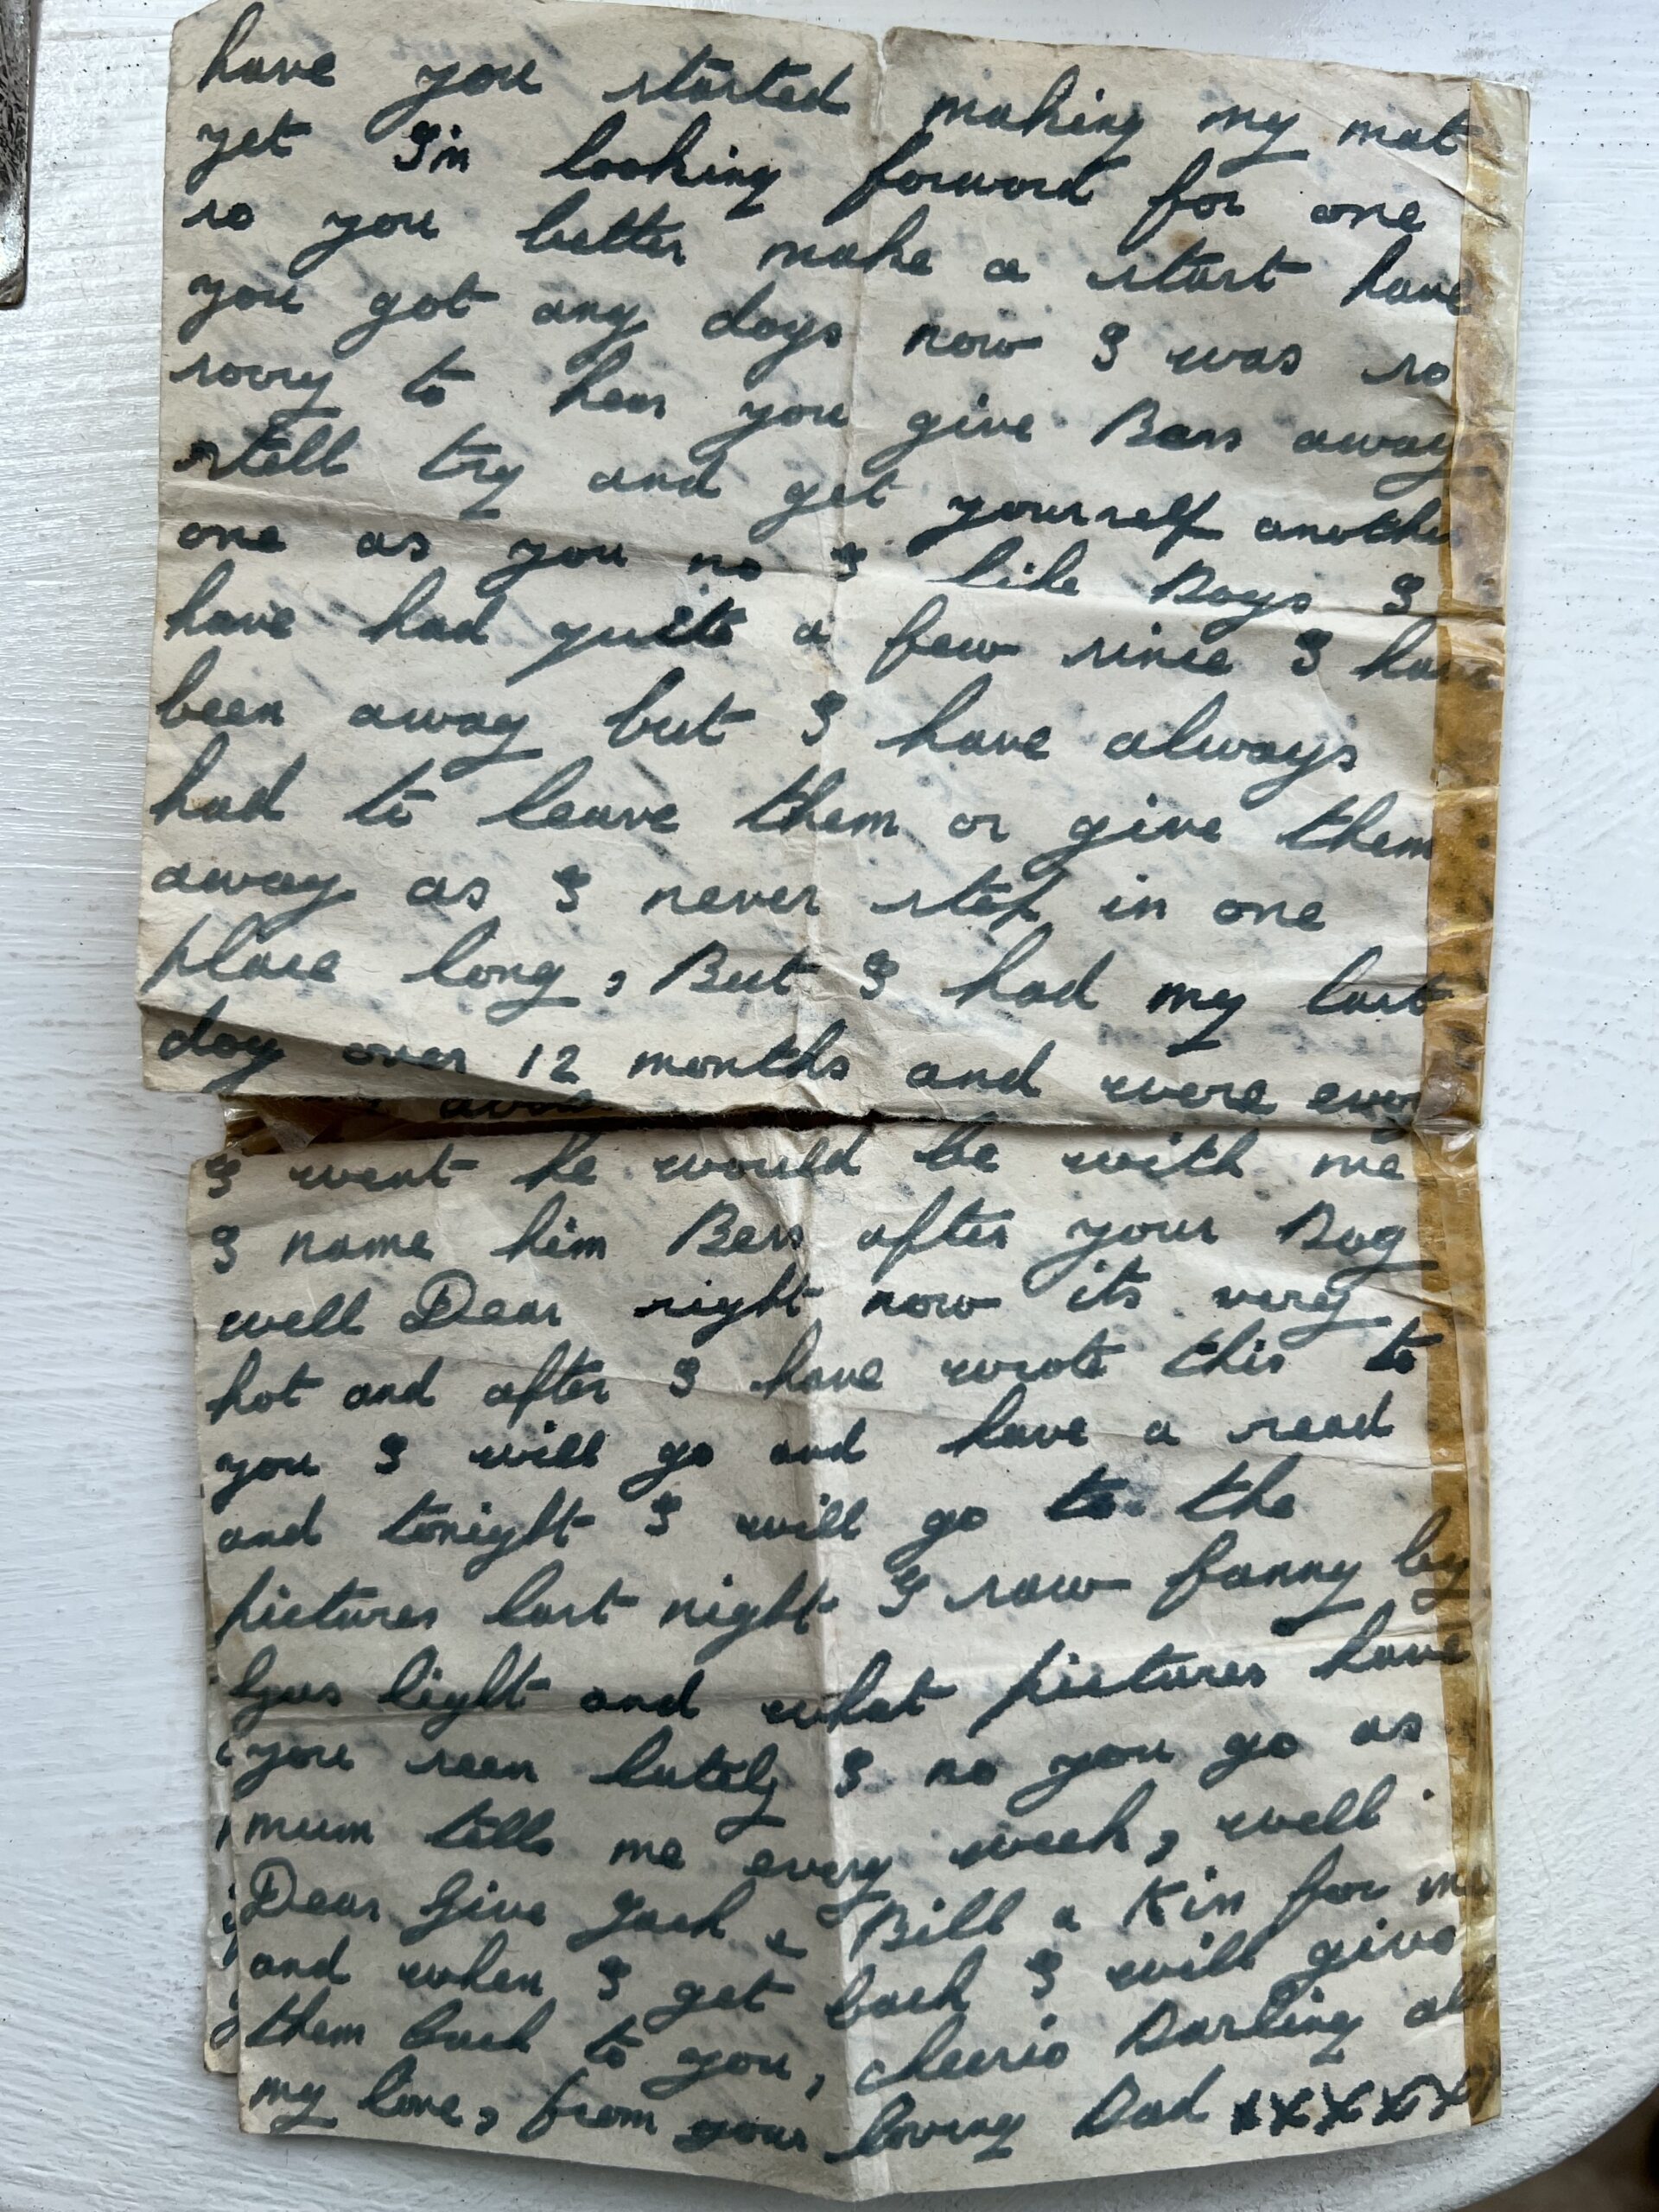 have you started making my mat
yet I'm looking forward for one
so you better make a start have
you got any dogs now I was so
sorry to hear you give Bess away
still try and get yourself another
one as you no I like Dogs I
have had quite a few since I have
been away but I have always
had to leave them or give them
away as I never stop in one
place long, But I had my last
dog over 12 months and were ever
I went he would be with me
I name him Bess after your Dog
well Dear right now its very
hot and after I have wrote this to
you I will go and have a read
and tonight I will go to the
pictures last night I saw fanny by
Gas light and what pictures have
you seen lately I no you go as
mum tells me every week, well
Dear Give Jack & Bill a Kiss for me
and when I get back I will give
them back to you, cheerio Darling all
my love, from your loving Dad xxxxx